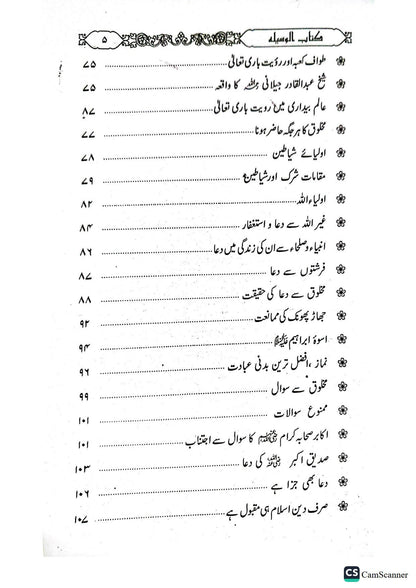 کتاب الوسیلہ ۵
طواف کعبہ اور رؤیت باری تعالیٰ ۷۵
شیخ عبدالقادر جیلانی رحمہ اللہ کا واقعہ ۷۵
عالم بیداری میں رویت باری تعالیٰ ۸۷
مخلوق کا ہر جگہ حاضر ہونا ۷۷
اولیائے شیاطین ۷۸
مقامات شرک اور شیاطین ۷۹
اولیاء اللہ ۸۲
غیر اللہ سے دعا و استغفار ۸۴
انبیاء و صلحاء سے ان کی زندگی میں دعا ۸۶
فرشتوں سے دعا ۸۷
مخلوق سے دعا کی حقیقت ۸۸
جھاڑ پھونک کی ممانعت ۹۲
اسوۂ ابراہیم علیہ السلام ۹۴
نماز ، افضل ترین بدنی عبادت ۹۶
مخلوق سے سوال ۹۹
ممنوع سوالات ۱۰۱
اکابر صحابہ کرام رضی اللہ عنہم کا سوال سے اجتناب ۱۰۱
صدیق اکبر رضی اللہ عنہ کی دعا ۱۰۳
دعا بھی جزا ہے ۱۰۶
صرف دین اسلام ہی مقبول ہے ۱۰۷
CS CamScanner